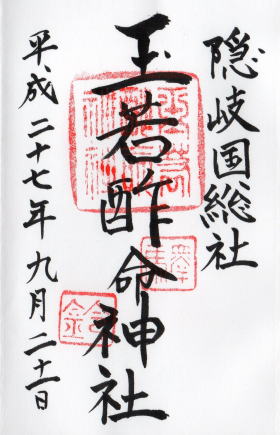 隠岐国総社
玉若酢命神社
平成二十七年九月二十一日